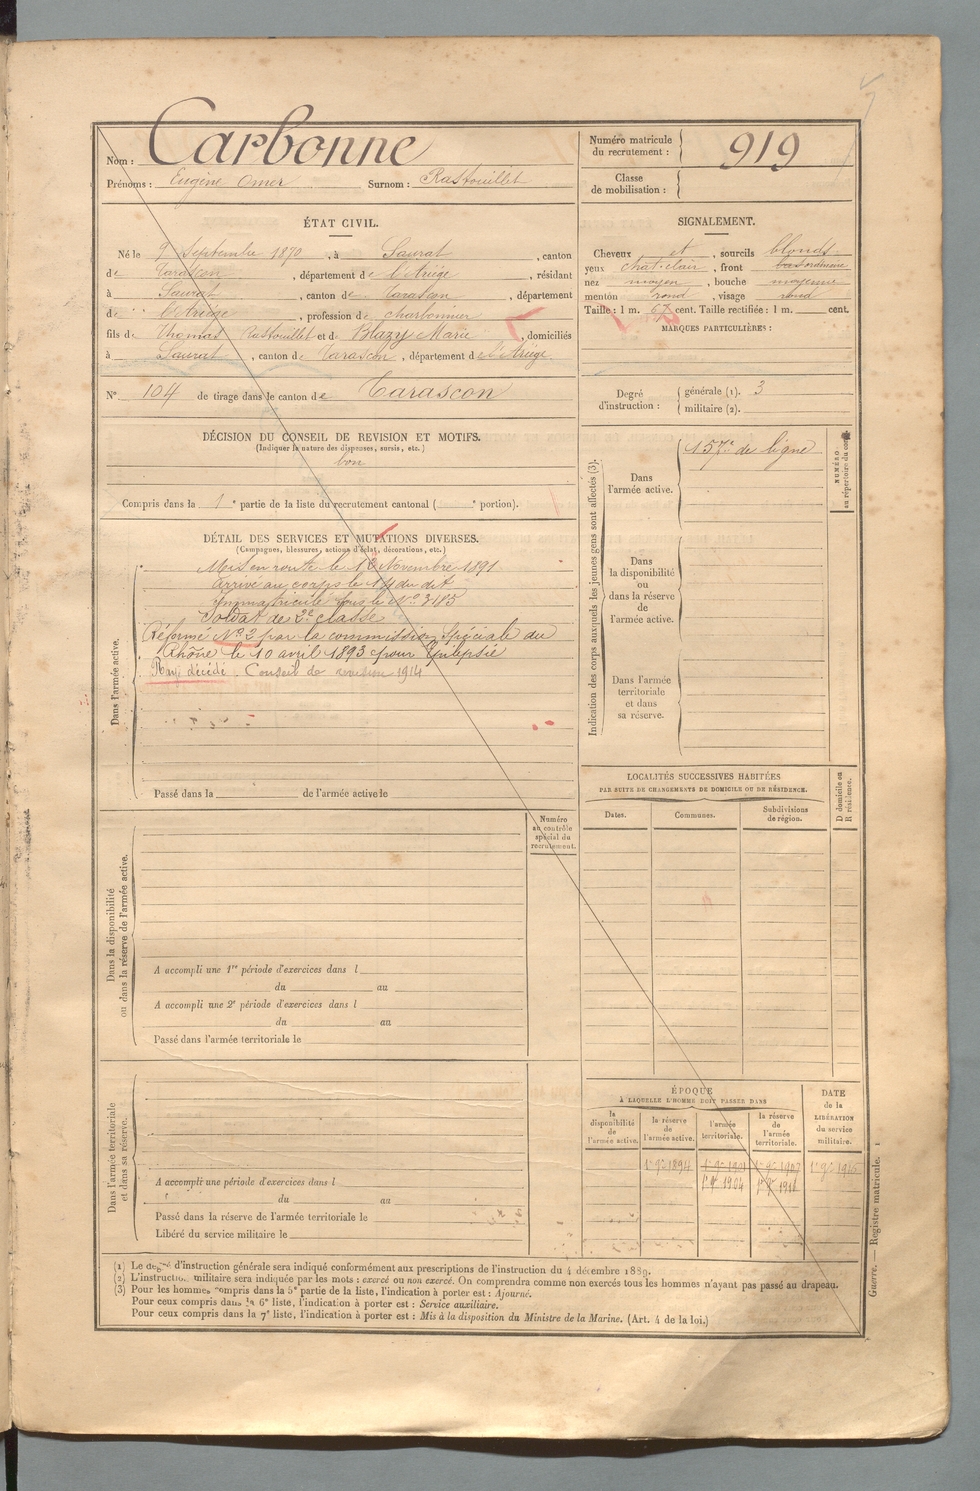 Nom : Carbonne
Prénoms : Eugène Omer Surnom : Rastouillet
Numéro matricule du recrutement : 919
Classe de mobilisation :
ÉTAT CIVIL.
Né le 9 Septembre 1870, à Saurat, canton
de Tarascon, département de l'Ariège, résidant
à Saurat, canton de Tarascon, département
de l'Ariège, profession de charbonnier
fils de Thomas Rastouillet et de Blazy Marie, domiciliés
à Saurat, canton de Tarascon, département de l'Ariège.
N° 104 de tirage dans le canton de Tarascon
SIGNALEMENT.
Cheveux et, sourcils blonds
yeux chat. clair, front
nez moyen, bouche moyenne
menton rond, visage rond
Taille : 1 m. 67 cent. Taille rectifiée : 1 m. cent.
MARQUES PARTICULIÈRES :
Degré d'instruction : générale (1). 3
militaire (2).
DÉCISION DU CONSEIL DE REVISION ET MOTIFS.
(Indiquer la nature des dispenses, sursis, etc.)
bon
Compris dans la 1e partie de la liste du recrutement cantonal ( e portion).
DÉTAIL DES SERVICES ET MUTATIONS DIVERSES.
(Campagnes, blessures, actions d'éclat, décorations, etc.)
Dans l'armée active.
Mis en route le 12 Novembre 1891
Arrivé au corps le 14 du dit
Immatriculé sous le N° 3185
Soldat de 2e classe
Réformé N° 2 par la commission Spéciale du
Rhône le 10 avril 1893 pour Epilepsie
Rayé décédé. Conseil de revision 1914
Passé dans la de l'armée active le
Indication des corps auxquels les jeunes gens sont affectés (3).
Dans l'armée active.
157e de ligne
NUMÉRO au répertoire du corps
Dans la disponibilité ou dans la réserve de l'armée active.
Dans l'armée territoriale et dans sa réserve.
LOCALITÉS SUCCESSIVES HABITÉES
PAR SUITE DE CHANGEMENTS DE DOMICILE OU DE RÉSIDENCE.
Dates. Communes. Subdivisions de région.
D domicile ou R résidence.
Dans la disponibilité ou dans la réserve de l'armée active.
Numéro au contrôle spécial du recrutement.
A accompli une 1re période d'exercices dans l
du au
A accompli une 2e période d'exercices dans l
du au
Passé dans l'armée territoriale le
Dans l'armée territoriale et dans sa réserve.
A accompli une période d'exercices dans l
du au
Passé dans la réserve de l'armée territoriale le
Libéré du service militaire le
ÉPOQUE
À LAQUELLE L'HOMME DOIT PASSER DANS
la disponibilité de l'armée active.
la réserve de l'armée active.
l'armée territoriale.
la réserve de l'armée territoriale.
DATE de la LIBÉRATION du service militaire.
1er 9bre 1894
1er 9bre 1904
(1) Le degré d'instruction générale sera indiqué conformément aux prescriptions de l'instruction du 4 décembre 1889.
(2) L'instruction militaire sera indiquée par les mots : exercé ou non exercé. On comprendra comme non exercés tous les hommes n'ayant pas passé au drapeau.
(3) Pour les hommes compris dans la 5e partie de la liste, l'indication à porter est : Ajourné.
Pour ceux compris dans la 6e liste, l'indication à porter est : Service auxiliaire.
Pour ceux compris dans la 7e liste, l'indication à porter est : Mis à la disposition du Ministre de la Marine. (Art. 4 de la loi.)
Guerre. — Registre matricule. 1